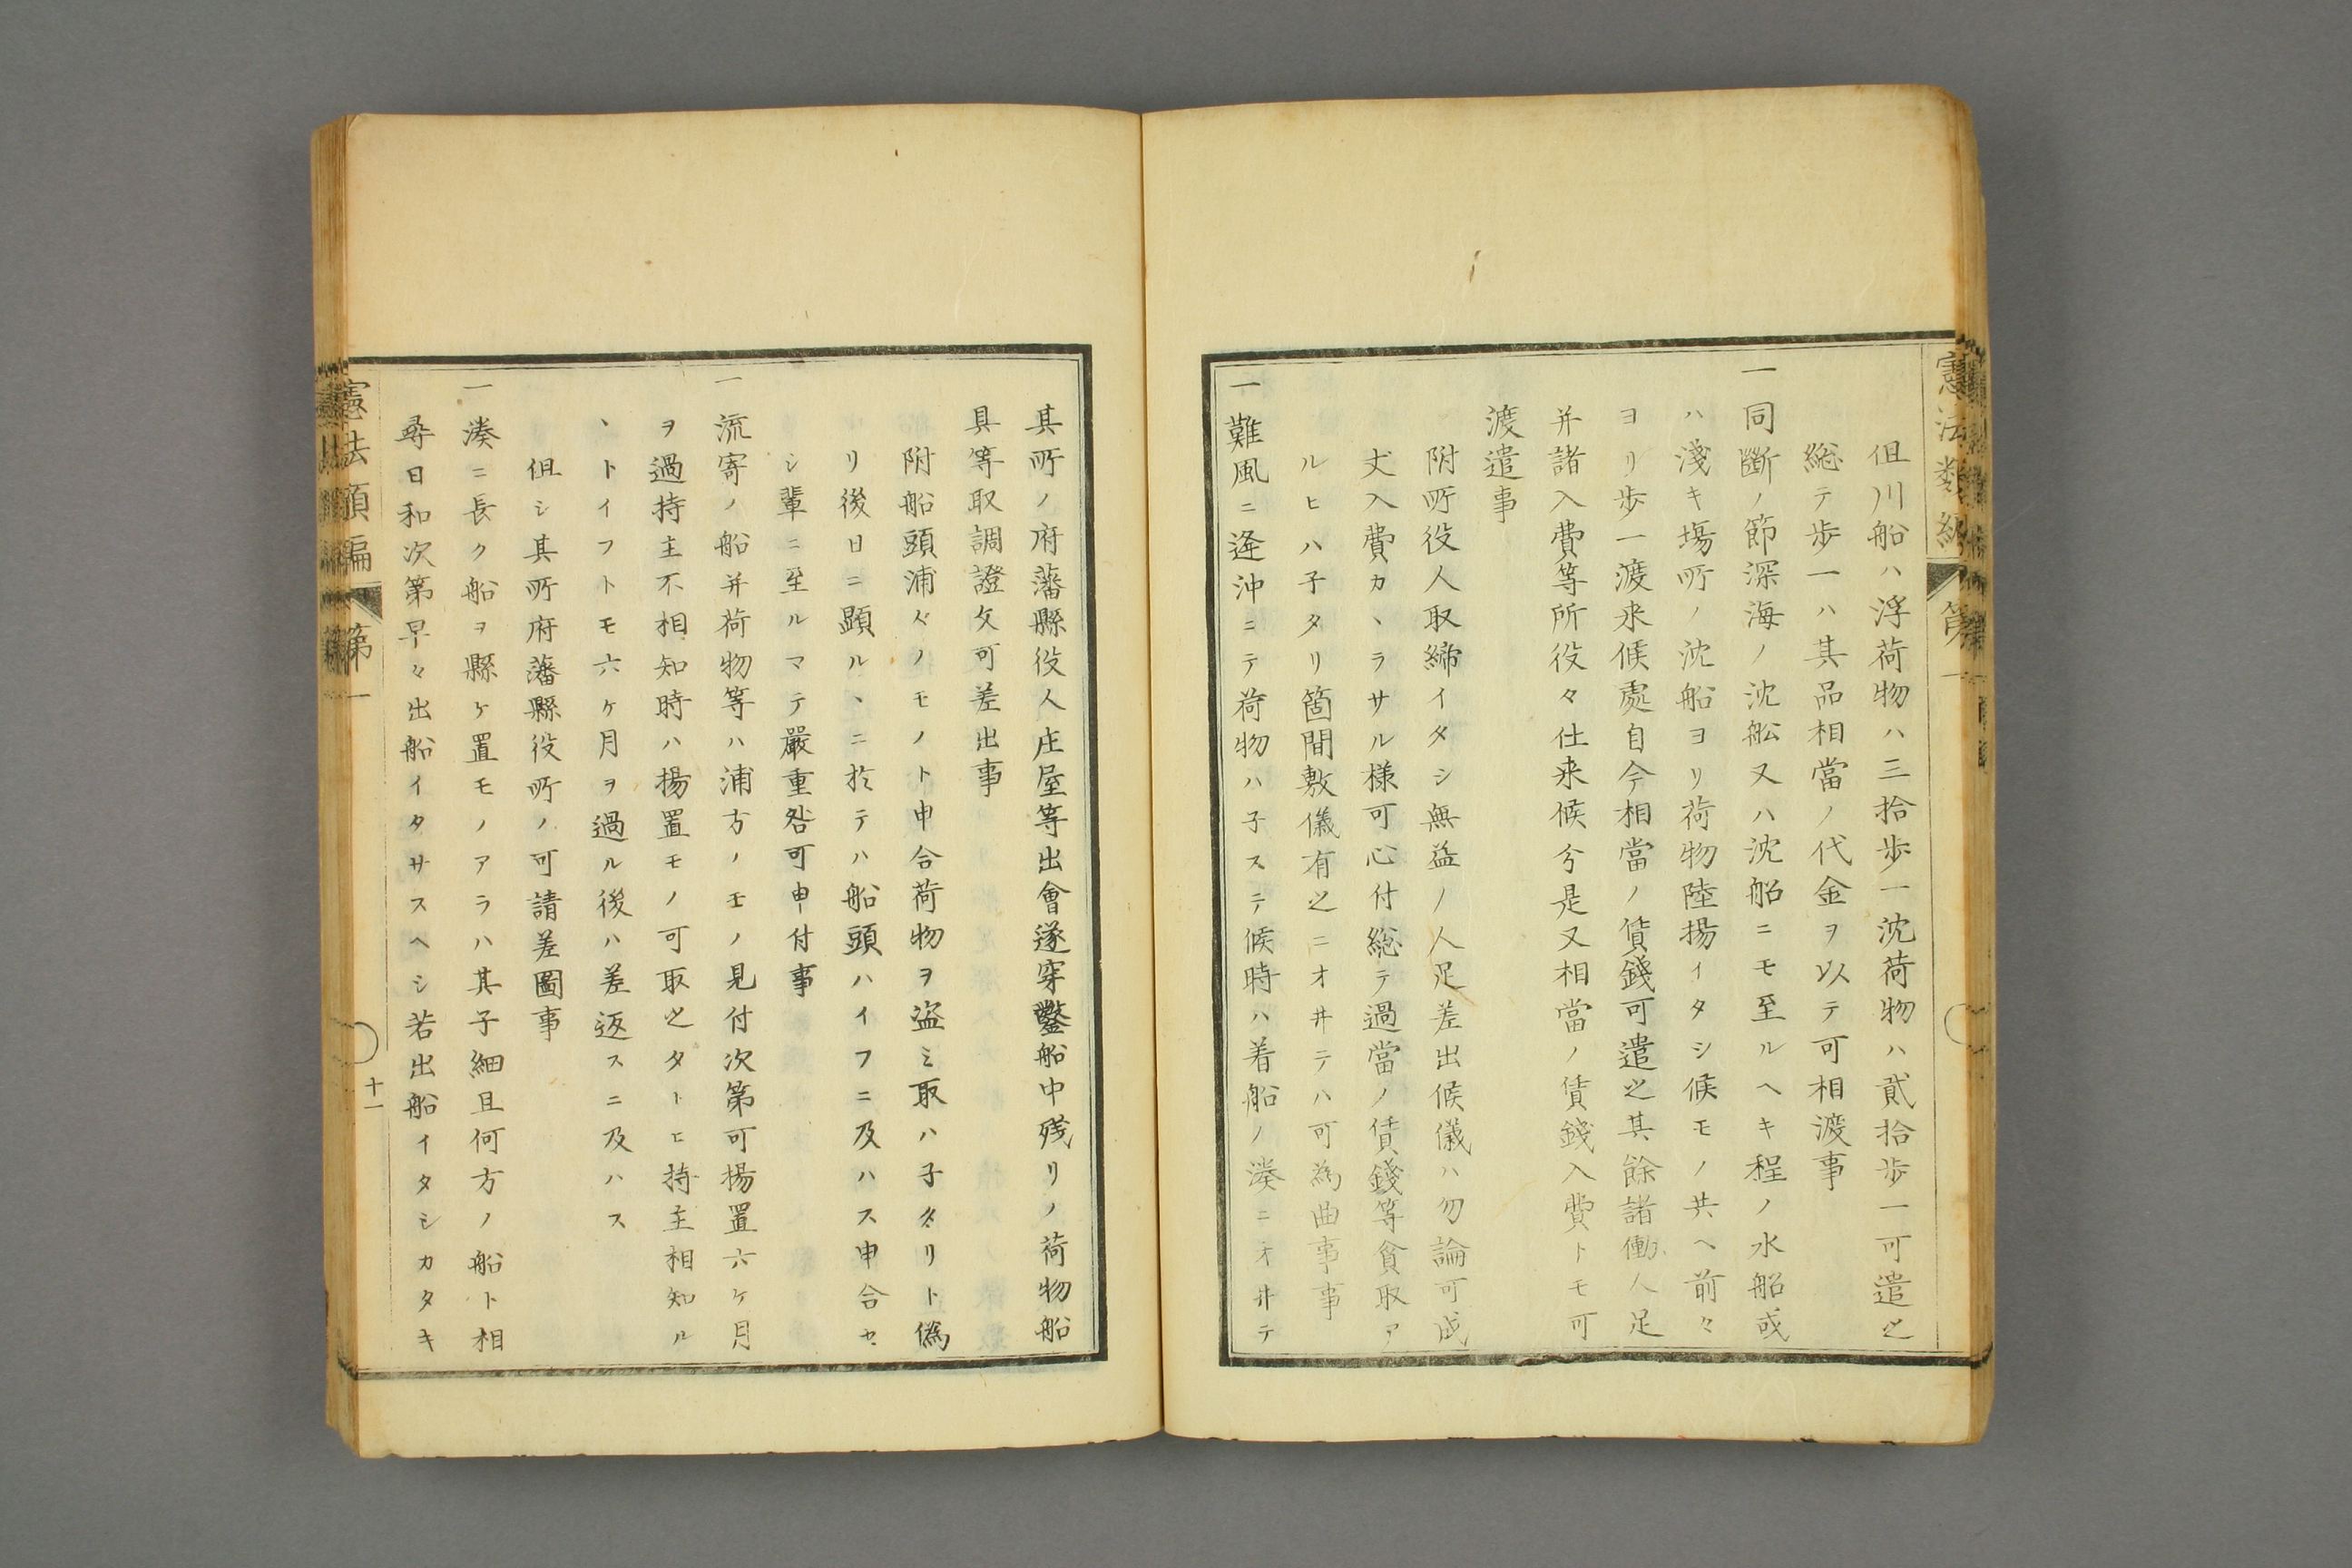 憲法類編 第一
但川船ハ浮荷物ハ三拾歩一沈荷物ハ貳拾歩一可遣之
総テ歩一ハ其品相當ノ代金ヲ以テ可相渡事
一同斷ノ節深海ノ沈舩又ハ沈船ニモ至ルヘキ程ノ水船或
ハ淺キ塲所ノ沈船ヨリ荷物陸揚イタシ候モノ共ヘ前々
ヨリ歩一渡来候處自今相當ノ賃錢可遣之其餘諸働人足
并諸入費等所役々仕来候分是又相當ノ賃錢入費トモ可
渡遣事
附所役人取締イタシ無益ノ人足差出候儀ハ勿論可成
丈入費カヽラサル様可心付総テ過當ノ賃錢等貪取ア
ルヒハ子タリ箇間敷儀有之ニオヰテハ可為曲事事
一難風ニ逢沖ニテ荷物ハ子ステ候時ハ着船ノ湊ニオヰテ
其所ノ府藩縣役人庄屋等出會遂穿鑿船中残リノ荷物船
具等取調證文可差出事
附船頭浦々ノモノト申合荷物ヲ盗ミ取ハ子タリト偽
リ後日ニ顕ルヽニ於テハ船頭ハイフニ及ハス申合セ
シ輩ニ至ルマテ嚴重咎可申付事
一流寄ノ船并荷物等ハ浦方ノモノ見付次第可揚置六ケ月
ヲ過持主不相知時ハ揚置モノ可取之タトヒ持主相知ル
ヽトイフトモ六ケ月ヲ過ル後ハ差返スニ及ハス
但シ其所府藩縣役所ノ可請差圖事
一湊ニ長ク船ヲ縣ケ置モノアラハ其子細且何方ノ船ト相
尋日和次第早々出船イタサスヘシ若出船イタシカタキ
憲法類編 第一
十一